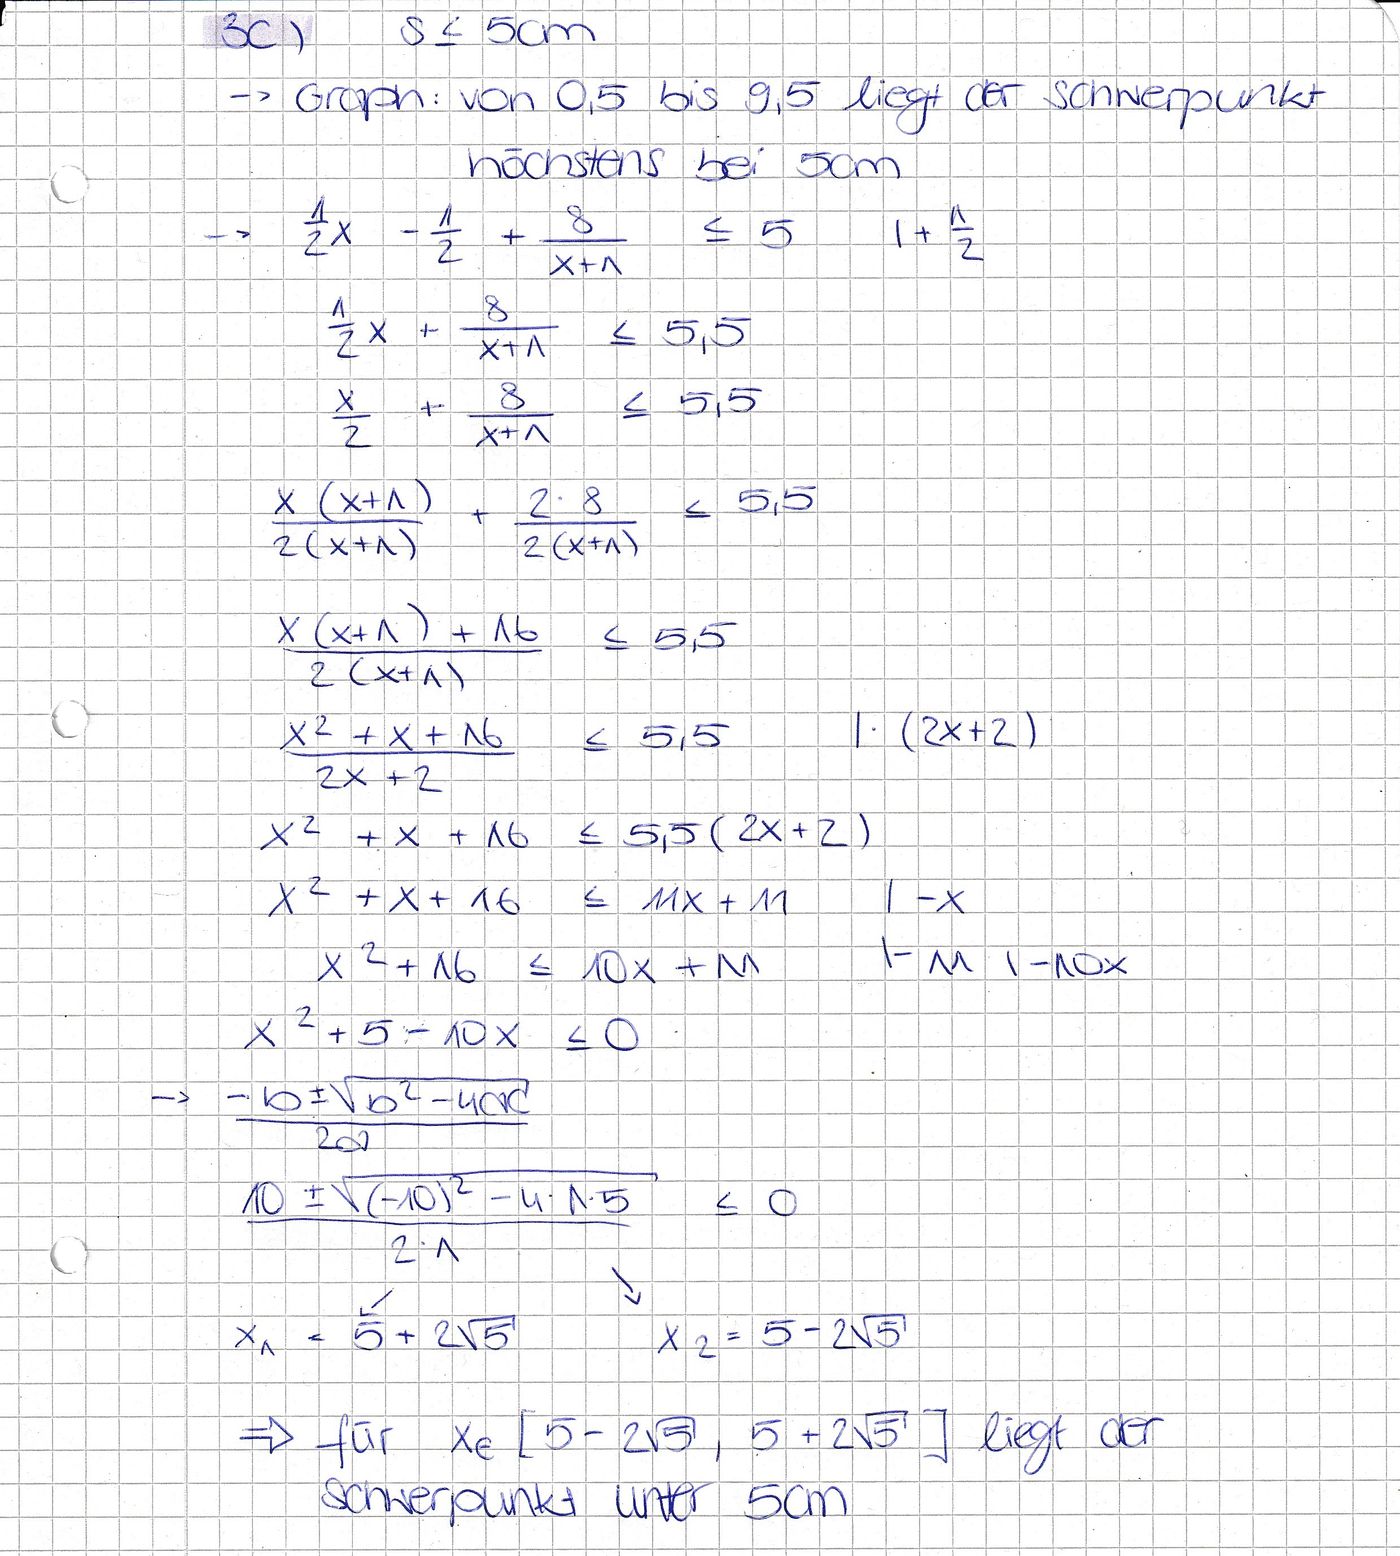 3c) s ≤ 5cm
→ Graph: von 0,5 bis 9,5 liegt der Schwerpunkt
höchstens bei 5cm
→ 1/2 x - 1/2 + 8/(x+1) ≤ 5 | + 1/2
1/2 x + 8/(x+1) ≤ 5,5
x/2 + 8/(x+1) ≤ 5,5
x(x+1)/2(x+1) + 2·8/2(x+1) ≤ 5,5
(x(x+1) + 16)/2(x+1) ≤ 5,5
(x² + x + 16)/(2x + 2) ≤ 5,5 | · (2x+2)
x² + x + 16 ≤ 5,5(2x+2)
x² + x + 16 ≤ 11x + 11 | -x
x² + 16 ≤ 10x + 11 | - 11 | - 10x
x² + 5 - 10x ≤ 0
→ (-b ± √(b² - 4ac))/2a
(10 ± √((-10)² - 4·1·5))/(2·1) ≤ 0
↙ ↘
x₁ = 5 + 2√5 x₂ = 5 - 2√5
⇒ für x∈ [5 - 2√5, 5 + 2√5] liegt der
Schwerpunkt unter 5cm